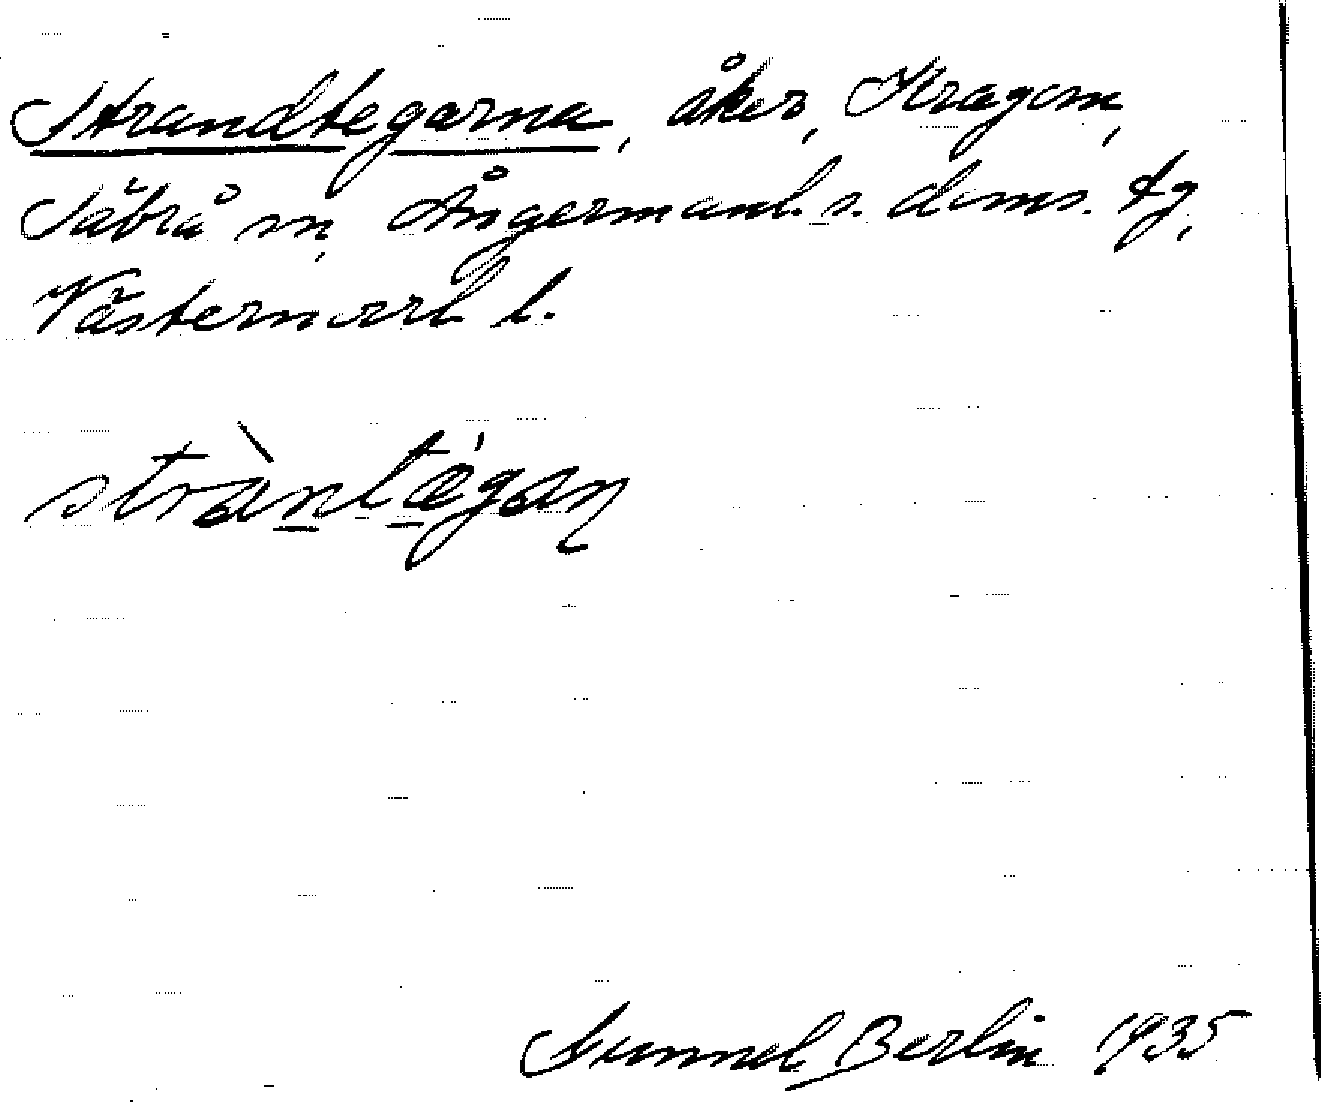 Strandtegarna, åker, Kragom,
Säbrå sn, Ångermanl. s. doms. tg,
Västernorrl l.
stràntégan
Gunnel Berlin 1935